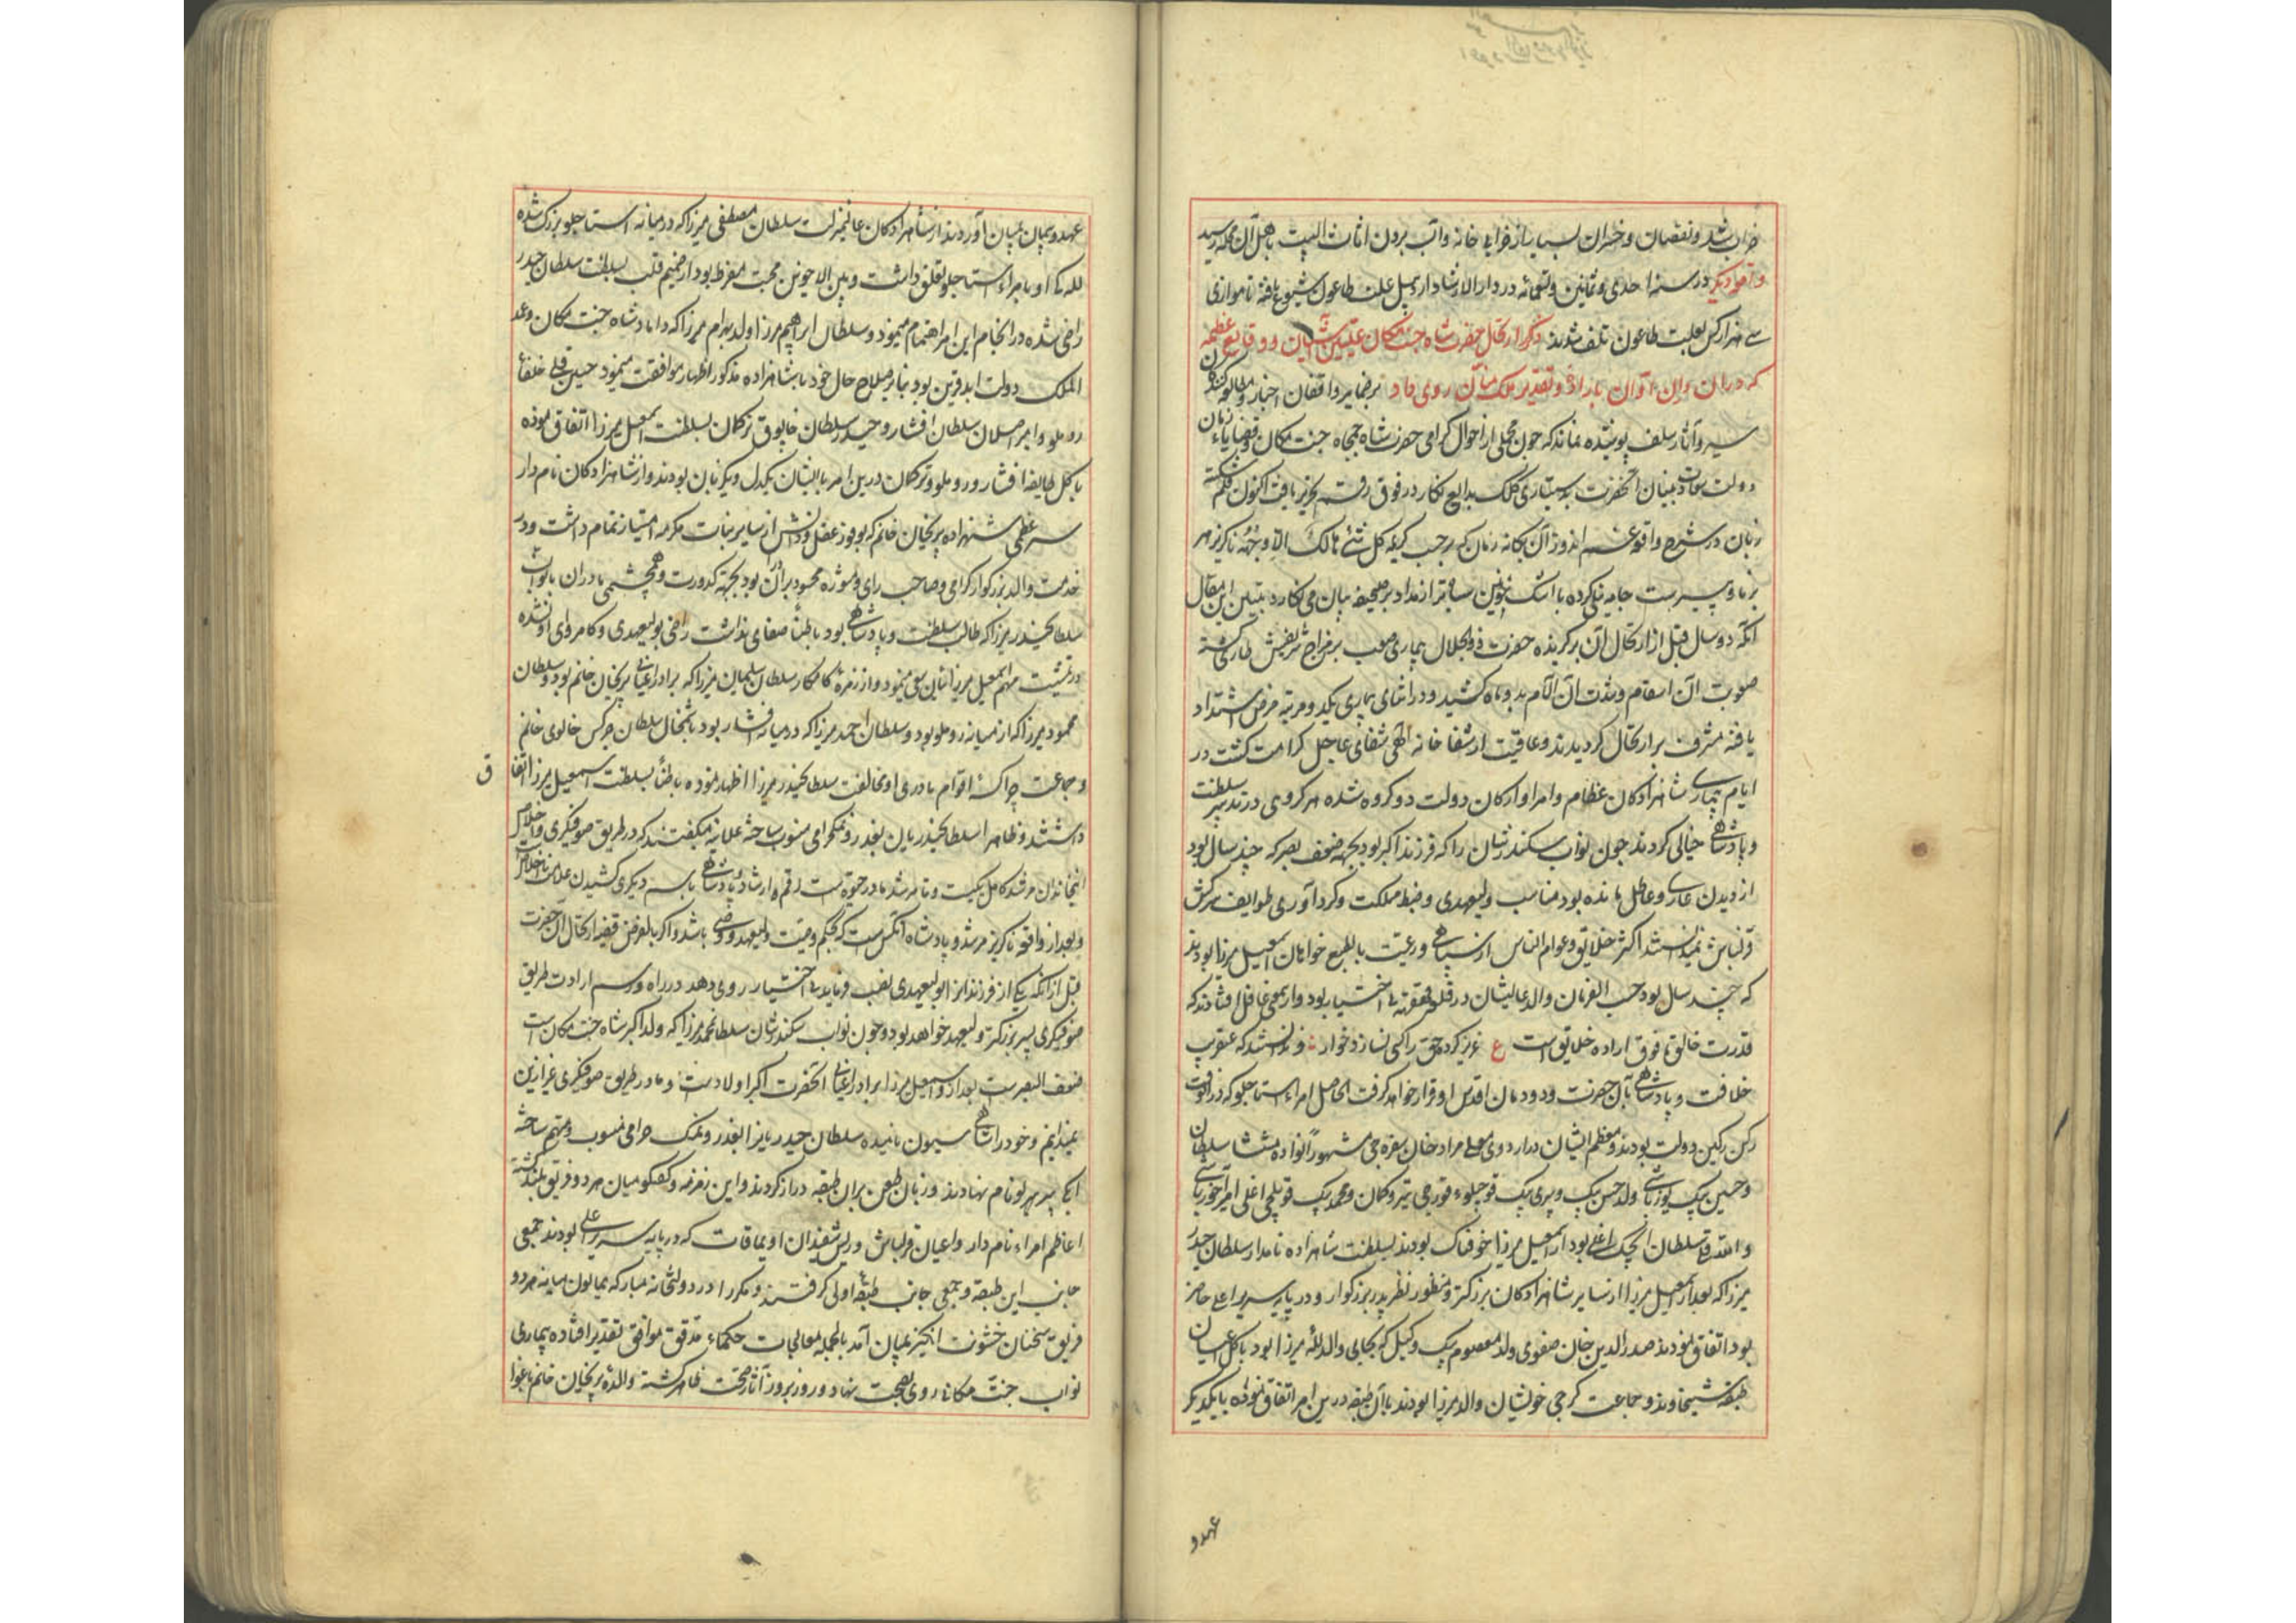 خراب شد و نقصان و خسران بسیار از خرابی خانه و آب بردن اثاث البیت باهل آن محله رسید
واقعه دیگر در سنه احدی و ثمانین و تسعمائه در دار الارشاد اردبیل علت طاعون شیوع یافته تا موازی
سی هزار کس بعلت طاعون تلف شدند ذکر ارتحال حضرت شاه جنت مکان علیین آشیان و وقایع عظمه
که در ان اوان باراده و تقدیر ملک منان روی داد بر ضمایر واقفان اخبار و مطالعه کنندگان
سیر و آثار سلف پوشیده نماند که چون مجملی از احوال گرامی حضرت شاه جمجاه جنت مکان و قضایاء زمان
دولت سعادت بنیان آنحضرت به دستیاری کلک بدایع نگار در فوق رقم تحریر یافت اکنون قلم شکسته
زبان در شرح واقعه غم اندوز آن یگانه زمان که بموجب کریمه کل شئی هالک الا وجهه ناگزیر هر
برنا و پیر است جامه نیلی کرده با اشک خونین سفابتر از مداد بر صحیفه بیان می نگارد تبیین این مقال
آنکه دو سال قبل از ارتحال آن برگزیده حضرت ذوالجلال بیماری صعب بر مزاج شریفش طاری گشته
صعوبت آن اسقام و شدت آن آلام بدو ماه کشید و در اثنای بیماری یکدو مرتبه مرض اشتداد
یافته مشرف بر ارتحال گردیدند و عاقبت از شفا خانه الهی شفای عاجل کرامت گشت در
ایام بیماری شاهزادگان عظام و امرا و ارکان دولت دو گروه شده هر گروهی در تدبیر سلطنت
و پادشاهی خیالی کردند چون نواب سکندر شان را که فرزند اکبر بود بجهة ضعف بصر که چند سال بود
از دیدن عاری و عاطل مانده بود مناسب ولیعهدی و ضبط مملکت و گردآوری طوایف سرکش
قزلباش نمیدانستند اکثر خلایق و عوام الناس از سپاهی و رعیت بالطبع خواهان اسمعیل میرزا بودند
که چند سال بود حسب الفرمان والد عالیشان در قلعه قهقهه بی اختیار بود و از معنی غافل افتادند که
قدرت خالق ما فوق اراده خلایق است ع عزیز کرده حق را کسی نسازد خوار و ندانستند که عنقریب
خلافت و پادشاهی بآن حضرت و دودمان اقدس او قرار خواهد گرفت الحاصل امراء استاجلو که در آنوقت
رکن رکین دولت بودند و معظم ایشان در اردوی معلی مراد خان سفره چی مشهور بانواده منتشا سلطان
و حسین بیک یوزباشی ولد حسن بیک و پیری بیک قوجلو قورچی تیر و کمان و محمد بیک قویلچی اغلی امیر آخور باشی
و الله قلی سلطان ایجک اغلی بود از اسمعیل میرزا خوفناک بودند بسلطنت شاهزاده نامدار سلطان حیدر
میرزا که بعد از اسمعیل میرزا از سایر شاهزادگان بزرگتر و منظور نظر پدر بزرگوار و در پایه سریر اعلی حاضر
بود اتفاق نمودند صدر الدین خان صفوی ولد معصوم بیک وکیل که بجای والد لله میرزا بود با کل اعیان
طبقه شیخاوند و جماعت گرجی خویشان والده میرزا بودند با آن طبقه درین امر اتفاق نموده با یکدیگر
عهد و
عهد و پیمان بمیان آوردند از شاهزادگان عالیمنزلت سلطان مصطفی میرزا که در میانه استاجلو بزرگ شده
لله گی او بامراء استاجلو تعلق داشت و بین الاخوین محبت مفرط بود از صمیم قلب بسلطنت سلطان حیدر
راضی شده در انجام این امر اهتمام مینمود و سلطان ابراهیم میرزا ولد بهرام میرزا که داماد شاه جنت مکان و عمد
الملک دولت ابد قرین بود بنابر صلاح حال خود با شاهزاده مذکور اظهار موافقت مینمود حسین قلی خلفاء
روملو و امیر اصلان سلطان افشار و حیدر سلطان خابوق ترکمان بسلطنت اسمعیل میرزا اتفاق نموده
با کل طایفه افشار و روملو و ترکمان درین امر با ایشان یکدل و یکزبان بودند و از شاهزادگان نام دار
ستر عظمی شهزاده پریخان خانم که بوفور عقل و دانش از سایر بنات مکرمه امتیاز تمام داشت و در
خدمت والد بزرگوار گرامی و صاحب رای و مشوره محسود برادران بود بجهة کدورت و همچشمی مادران با نواب
سلطان حیدر میرزا که طالب سلطنت و پادشاهی بود باطناً صفای نداشت راضی بولیعهدی و کامروای او نشده
در تمشیت مهم اسمعیل میرزا نهایت سعی مینمود و از زمره کامکار سلطان سلیمان میرزا که برادر اعیانی پریخان خانم بود و سلطان
محمود میرزا که از میانه روملو بود و سلطان احمد میرزا که در میانه افشار بود با شمخال سلطان چرکس خالوی خانم
و جماعت چراکسه اقوام مادری او مخالفت سلطان حیدر میرزا اظهار نموده باطناً بسلطنت اسمعیل میرزا اتفا
ق
داشتند و ظاهرا سلطان حیدریان بغدر و نمکحرامی منسوب ساخته علانیه میگفتند که در طریق صوفیگری و اخلاص
اینخاندان مرشد کامل یکیست و تا مرشد ما در حیوة است رقم ارشاد و پادشاهی باسم دیگری کشیدن علامت نا اخلاص
و بعد از واقعه ناگزیر مرشد و پادشاه آنکس است که بحکم وصیت ولیعهد و وصی باشد و اگر بالفرض قضیه ارتحال آن حضرت
قبل از آنکه یکی از فرزندانرا بولیعهدی نصب فرماید بی اختیار روی دهد در راه و رسم ارادت طریق
صوفیگری پسر بزرگتر ولیعهد خواهد بود و چون نواب سکندر شان سلطان محمد میرزا که ولد اکبر شاه جنت مکان است
ضعف البصر است بعد از و اسمعیل میرزا برادر اعیانی آنحضرت اکبر اولاد است و ما در طریق صوفیگری غیر ازین
نمیدانیم و خود را شاهی سیون نامیده سلطان حیدریانرا بغدر و نمک حرامی منسوب و متهم ساخته
نام نهادند و زبان طعن بران طبقه دراز کردند و این زمزمه و گفتگو میان هر دو فریق بلند گشته
اعاظم امراء نام دار و اعیان قزلباش و ریش سفیدان اویماقات که در پایه سریر اعلی بودند جمعی
جانب این طبقه و جمعی جانب طبقه اولی گرفتند و مکررا در دولتخانه مبارکه همایون میانه هر دو
فریق سخنان خشونت انگیز بمیان آمد بالجمله معالجات حکماء مدقق موافق تقدیر افتاده بیماری
نواب جنت مکان روی بصحت نهاد و روز بروز آثار صحت ظاهر گشته والده پریخان خانم باغوا